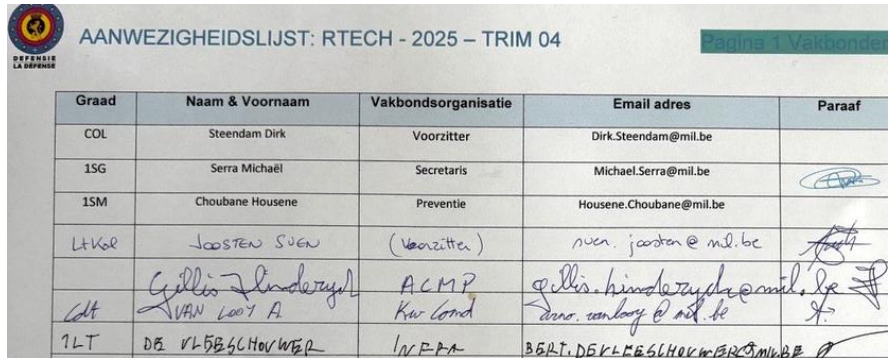 DEFENSIE
LA DÉFENSE
AANWEZIGHEIDSLIJST: RTECH - 2025 – TRIM 04
Pagina 1 Vakbonden
Graad Naam & Voornaam Vakbondsorganisatie Email adres Paraaf
COL Steendam Dirk Voorzitter Dirk.Steendam@mil.be
1SG Serra Michaël Secretaris Michael.Serra@mil.be
1SM Choubane Housene Preventie Housene.Choubane@mil.be
Lt Kol JOOSTEN SVEN (Voorzitter) sven.joosten@mil.be
Gillis Hinderyckx ACMP gillis.hinderyckx@mil.be
Cdt VAN LOOY A Kw Comd arno.vanlooy@mil.be
1LT DE VLEESCHOUWER INFRA BERT.DEVLEESCHOUWER@MIL.BE